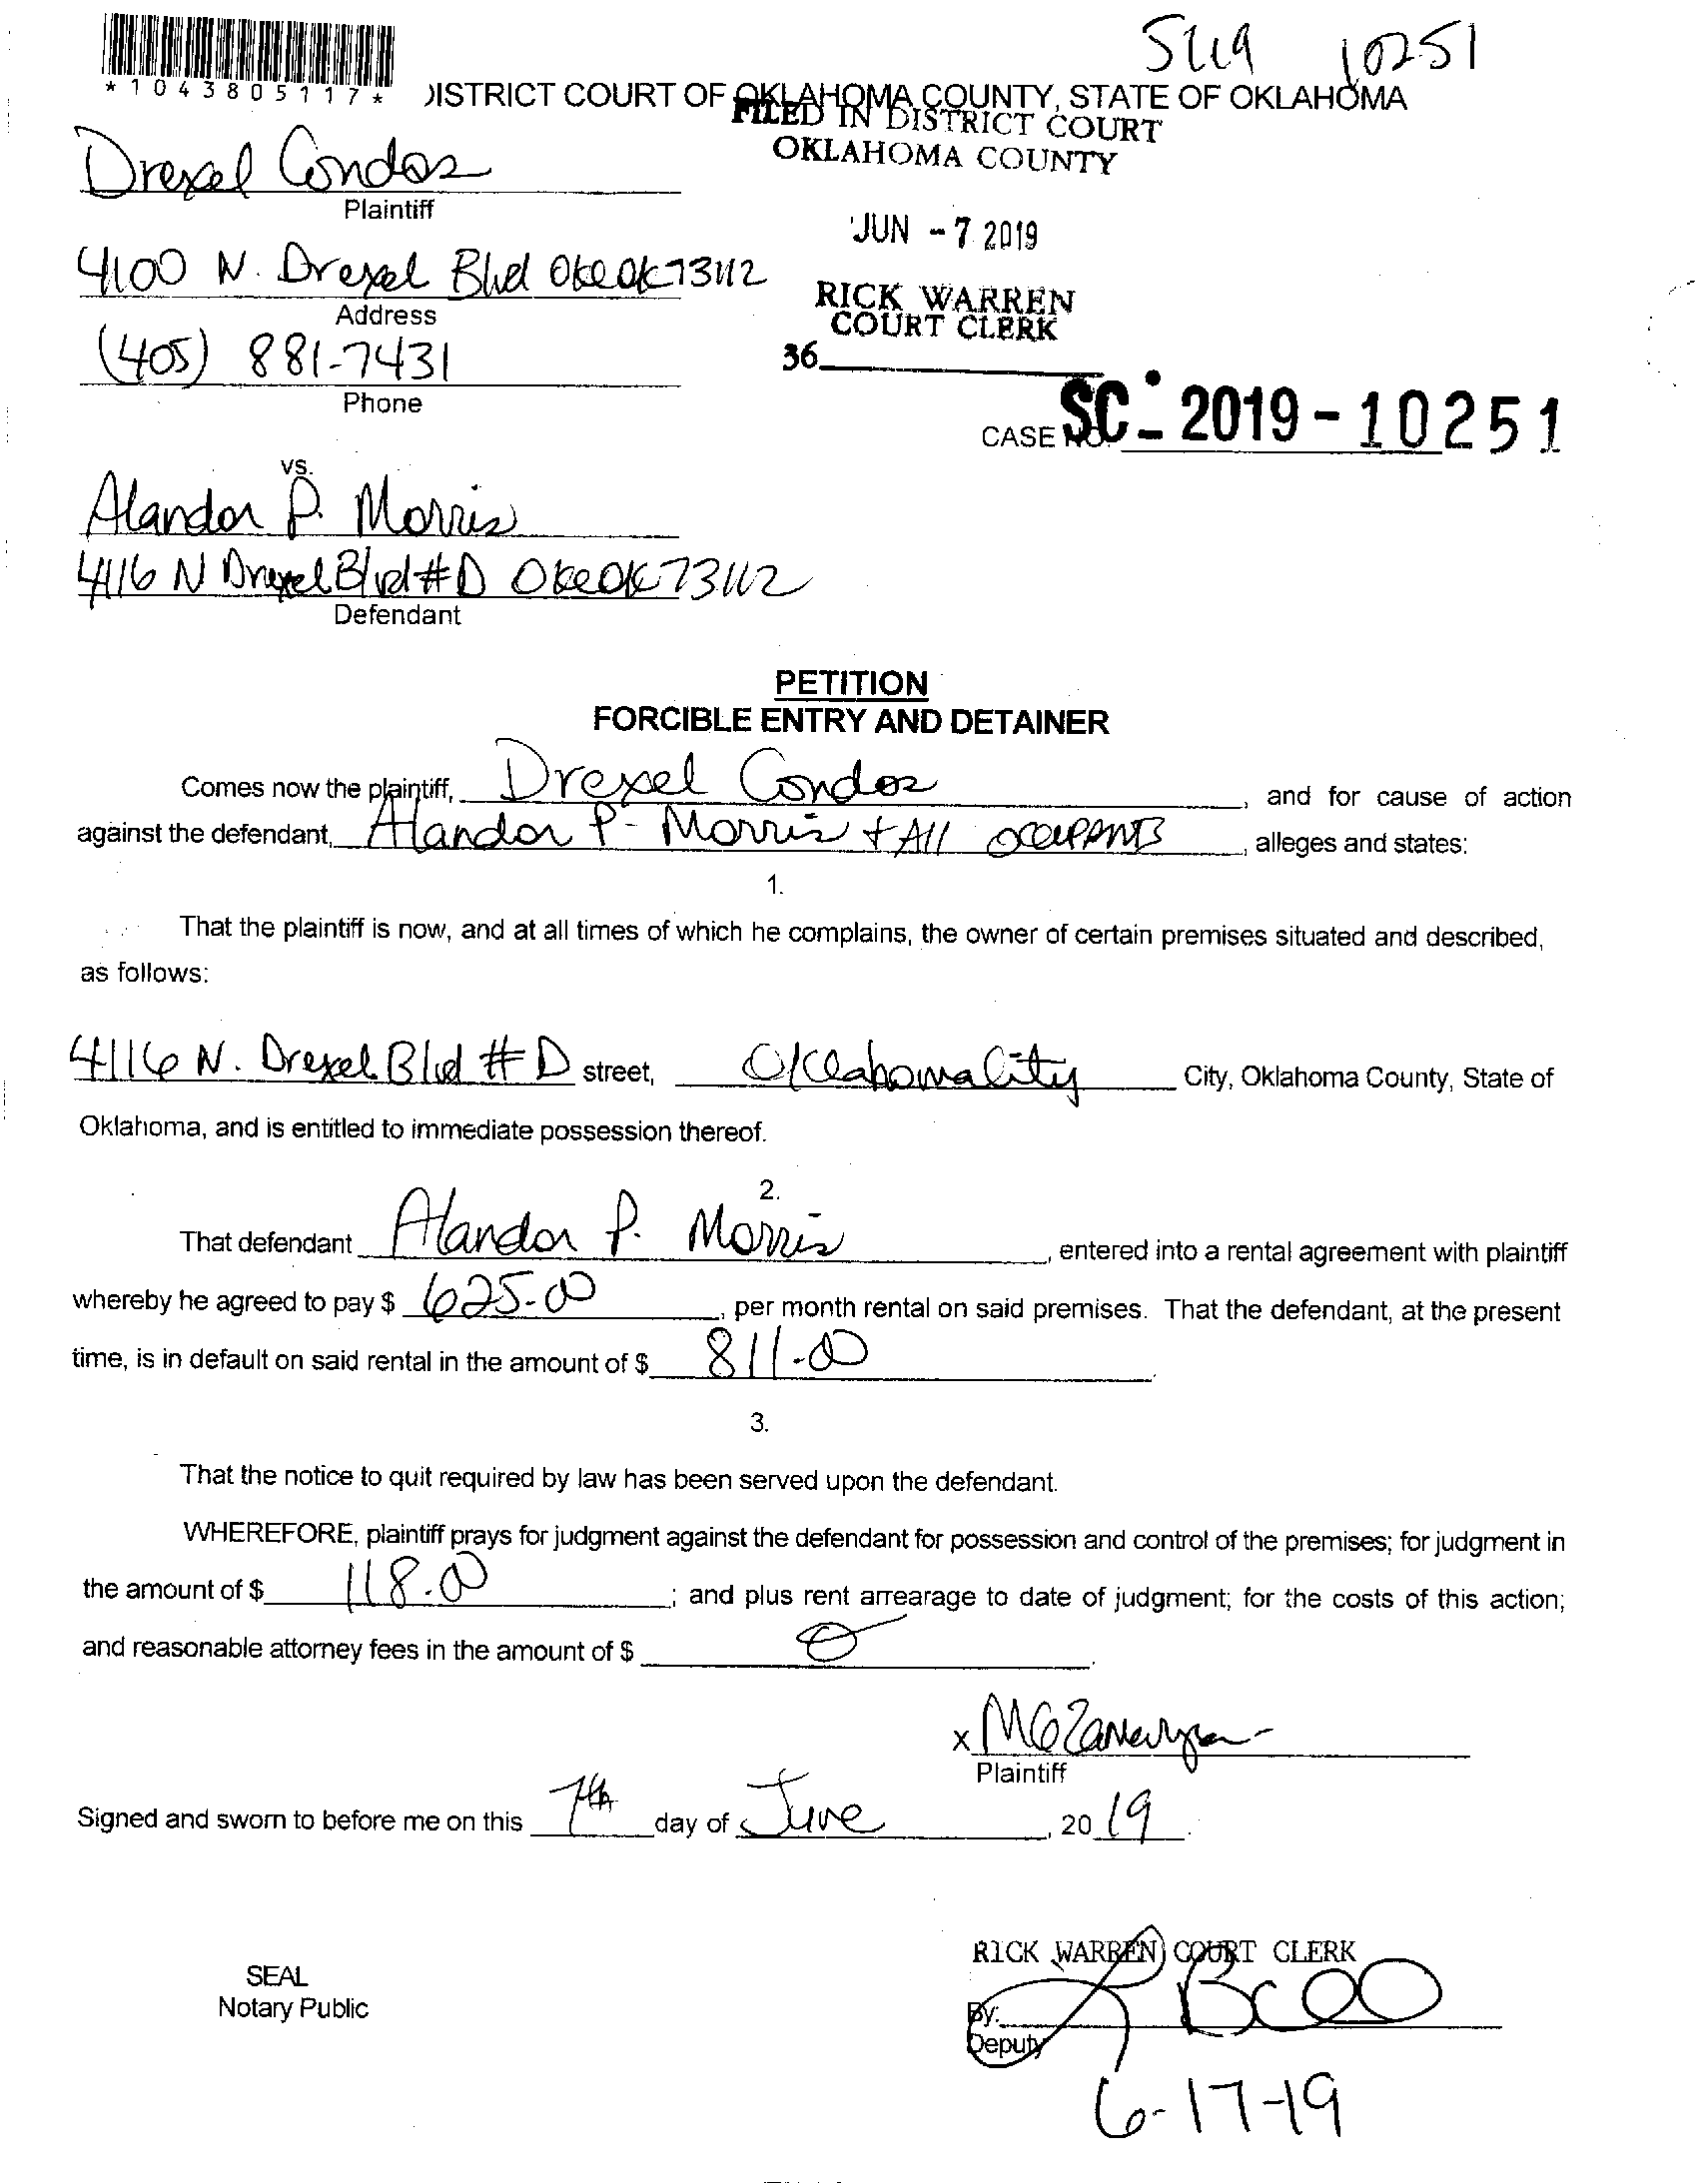 10251
*1043805117*
DISTRICT COURT OF OKLAHOMA COUNTY, STATE OF OKLAHOMA
FILED IN DISTRICT COURT
OKLAHOMA COUNTY
Drexel Condos
Plaintiff
JUN - 7 2019
4100 N. Drexel Blvd OKC OK 73112
Address
RICK WARREN
COURT CLERK
(405) 881-7431
36
Phone
CASE NO. SC - 2019 - 10251
vs.
Alandon P. Morris
4116 N Drexel Blvd #D OKC OK 73112
Defendant
PETITION
FORCIBLE ENTRY AND DETAINER
Comes now the plaintiff, Drexel Condos, and for cause of action
against the defendant, Alandon P. Morris + All occupants, alleges and states:
1.
That the plaintiff is now, and at all times of which he complains, the owner of certain premises situated and described,
as follows:
4116 N. Drexel Blvd #D street, Oklahoma City City, Oklahoma County, State of
Oklahoma, and is entitled to immediate possession thereof.
2.
That defendant Alandon P. Morris, entered into a rental agreement with plaintiff
whereby he agreed to pay $ 625.00, per month rental on said premises. That the defendant, at the present
time, is in default on said rental in the amount of $ 811.00.
3.
That the notice to quit required by law has been served upon the defendant.
WHEREFORE, plaintiff prays for judgment against the defendant for possession and control of the premises; for judgment in
the amount of $ 118.00; and plus rent arrearage to date of judgment; for the costs of this action;
and reasonable attorney fees in the amount of $ 0.
x
Plaintiff
Signed and sworn to before me on this 7th day of June, 20 19.
RICK WARREN COURT CLERK
SEAL
Notary Public
By:
Deputy
6-17-19